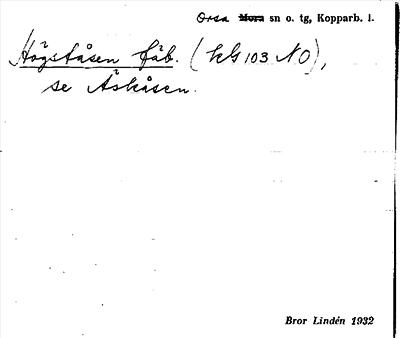 Orsa Mora sn o. tg, Kopparb. l.
Högståsen fäb. (kG 103 NO),
se Åskåsen.
Bror Lindén 1932